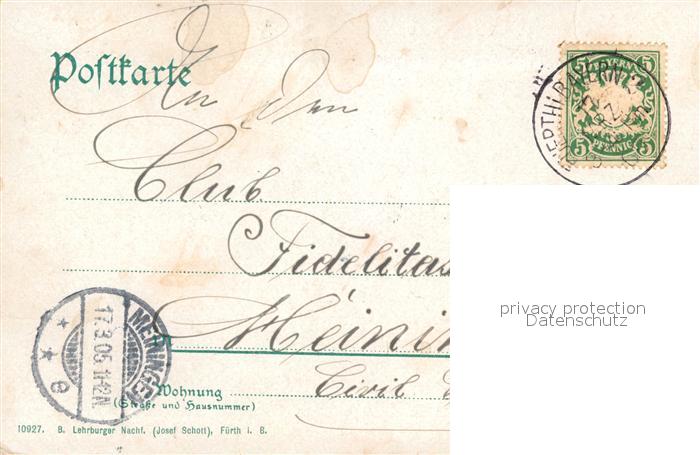 Postkarte
An den
Club
Fidelitas
Meinin
Civil
in
Wohnung
(Straße und Hausnummer)
10927. B. Lehrburger Nachf. (Josef Schott), Fürth i. B.
BAYERN
5 5
5 PFENNIG 5
FUERTH(BAYERN)
MEININGEN
17.3.06.11-12N.
* * e
privacy protection
Datenschutz